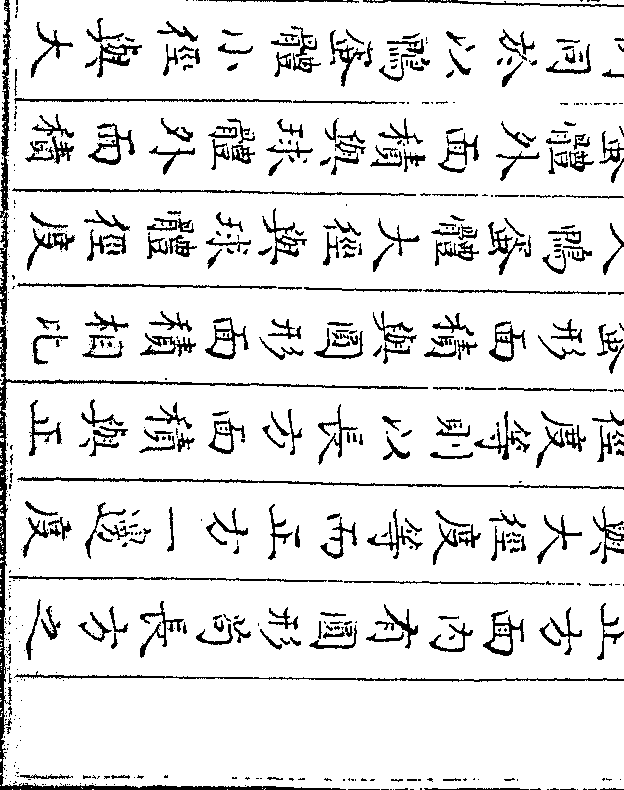 正方面內有圓形尚長方之
與大徑度等而正方一邊度
徑度等則以長方面積與正
蛋形面積與圓形面積相比
鴨蛋體大徑與球體徑度
蛋體外面積與球體外面積
同於以鴨蛋體小徑與大